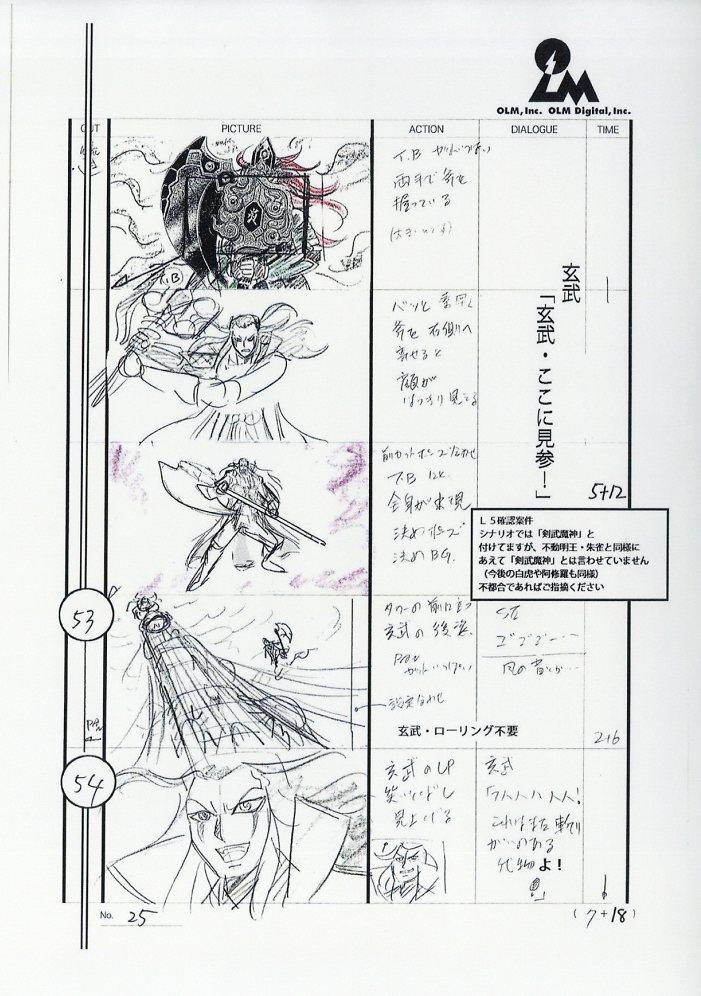 OLM, Inc. OLM Digital, Inc.
CUT PICTURE ACTION DIALOGUE TIME
T.B
両手で斧を
握っている
T.B
斧を右側へ
寄せると
顔が
はっきり見える
玄武
「玄武・ここに見参!」
T.B
全身が出現
決めポーズ
決めBG.
5+12
L5確認案件
シナリオでは「剣武魔神」と
付けてますが、不動明王・朱雀と同様に
あえて「剣武魔神」とは言わせていません
(今後の白虎や阿修羅も同様)
不都合であればご指摘ください
53
タワーの前に立つ
玄武の後姿
SE
ゴゴゴ
風の音
玄武・ローリング不要
2+6
54
玄武のUP
見上げる
玄武
「フハハハハハ!
これはまた斬り
がいのある
代物よ!
」
No. 25
(7+18)